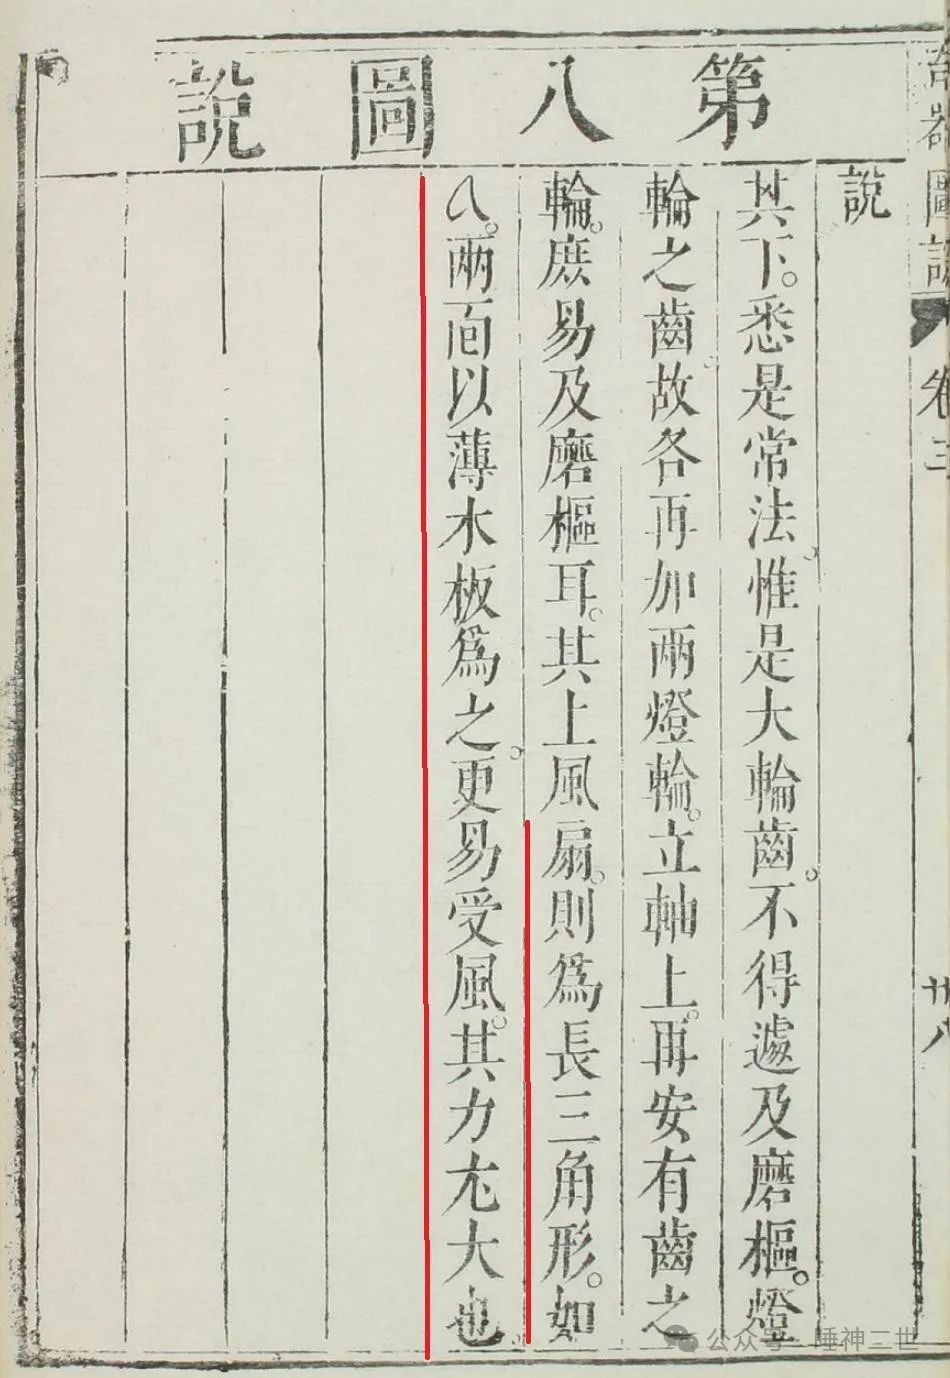 第八圖說
奇器圖說 卷三 廿八
說
其下。悉是常法。惟是大輪齒。不得遽及磨樞。燈
輪之齒。故各再加兩燈輪。立軸上。再安有齒之
輪。庶易及磨樞耳。其上風扇。則爲長三角形。如
。兩面以薄木板爲之。更易受風。其力尤大也。
公众号 · 睡神二世